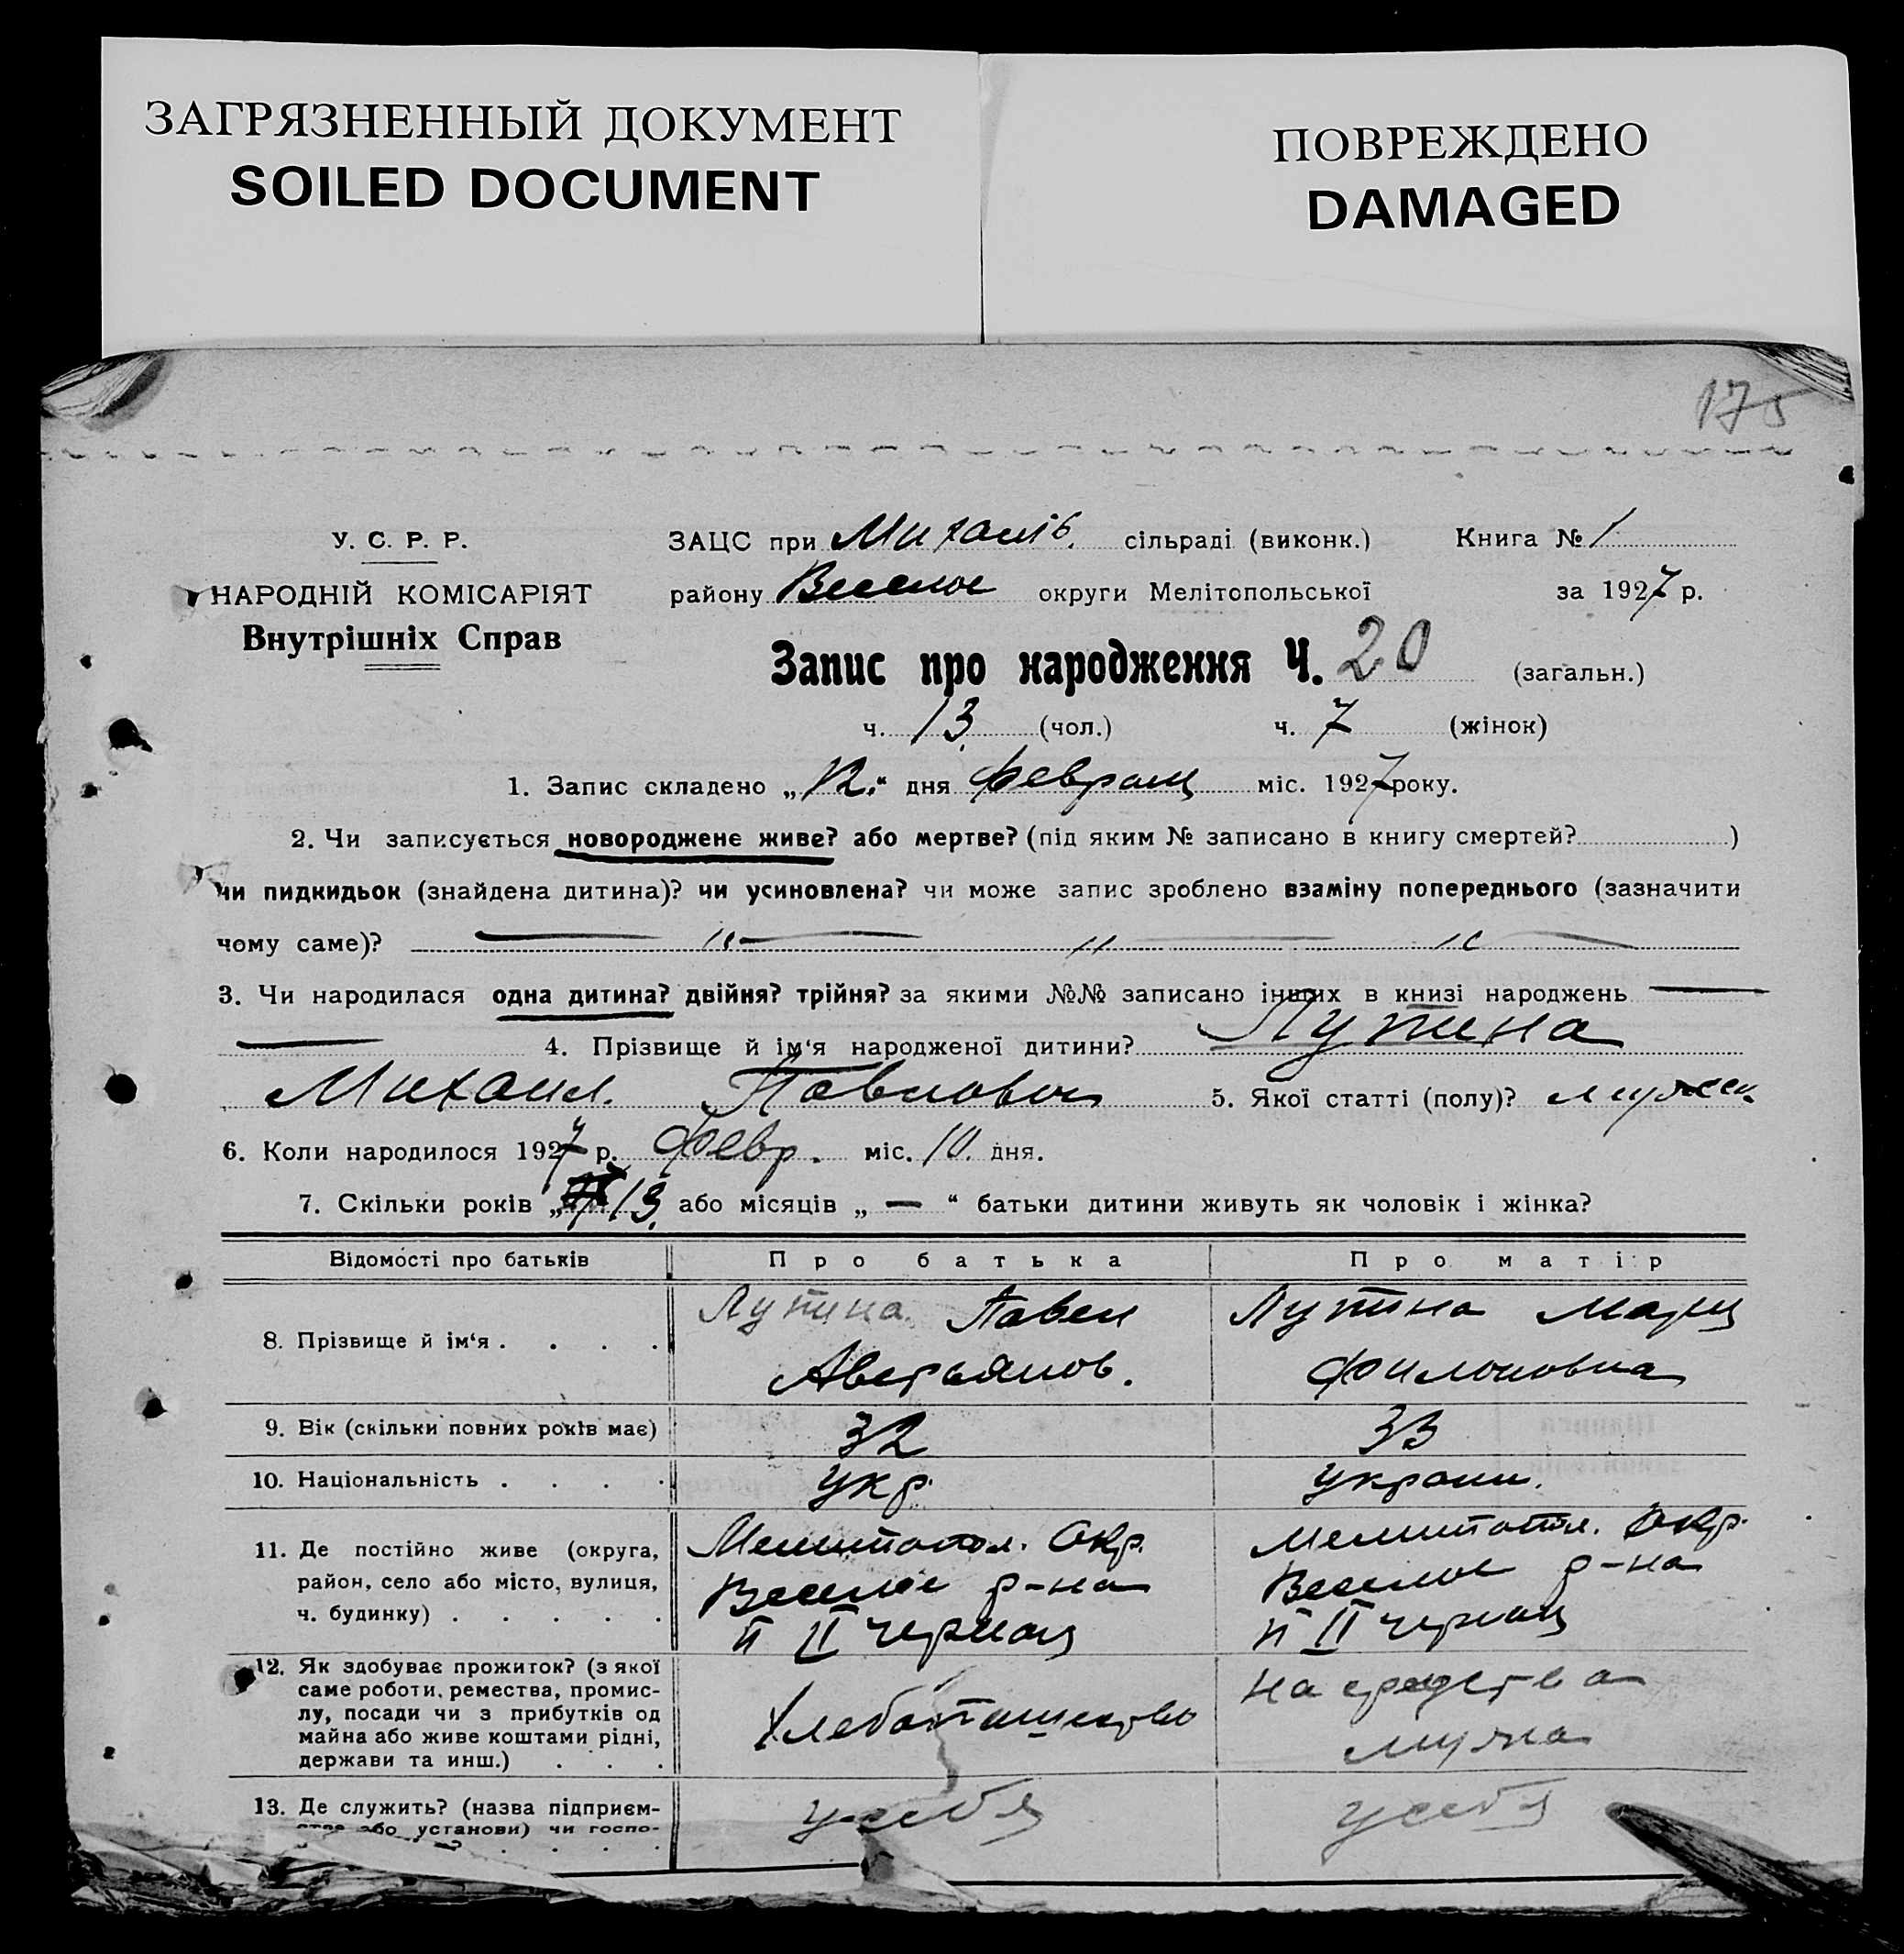 ЗАГРЯЗНЕННЫЙ ДОКУМЕНТ
SOILED DOCUMENT
ПОВРЕЖДЕНО
DAMAGED
175
У. С. Р. Р.
НАРОДНІЙ КОМІСАРІЯТ
Внутрішніх Справ
ЗАЦС при Михайлів. сільраді (виконк.) Книга № 1
району Веселое округи Мелітопольської за 1927 р.
Запис про народження Ч. 20 (загальн.)
ч. 13 (чол.) ч. 7 (жінок)
1. Запис складено „12“ дня Февраля міс. 1927 року.
2. Чи записується новороджене живе? або мертве? (під яким № записано в книгу смертей? )
чи пидкидьок (знайдена дитина)? чи усиновлена? чи може запис зроблено взаміну попереднього (зазначити
чому саме)? — " — " — " —
3. Чи народилася одна дитина? двійня? трійня? за якими №№ записано інших в книзі народжень —
— 4. Прізвище й ім‘я народженої дитини? Лупина
Михаил Павлович 5. Якої статті (полу)? мужеск.
6. Коли народилося 1927 р. Февр. міс. 10 дня.
7. Скільки років „13 або місяців „ — “ батьки дитини живуть як чоловік і жінка?
Відомості про батьків Про батька Про матір
8. Прізвище й ім‘я . . . . Лупина Павел Аверьянов. Лупина Мария Филоновна
9. Вік (скільки повних років має) 32 33
10. Національність . . . . Укр. Украин.
11. Де постійно живе (округа, Мелитопол. Окр. Мелитопол. Окр.
район, село або місто, вулиця, Веселое р-на Веселое р-на
ч. будинку) . . . . . п II п II
12. Як здобуває прожиток? (з якої
саме роботи, ремества, промис-
лу, посади чи з прибутків од
майна або живе коштами рідні,
держави та инш.) . . . Хлебопашество на средства мужа
13. Де служить? (назва підприєм- у себя у себя
або установи) чи госпо-